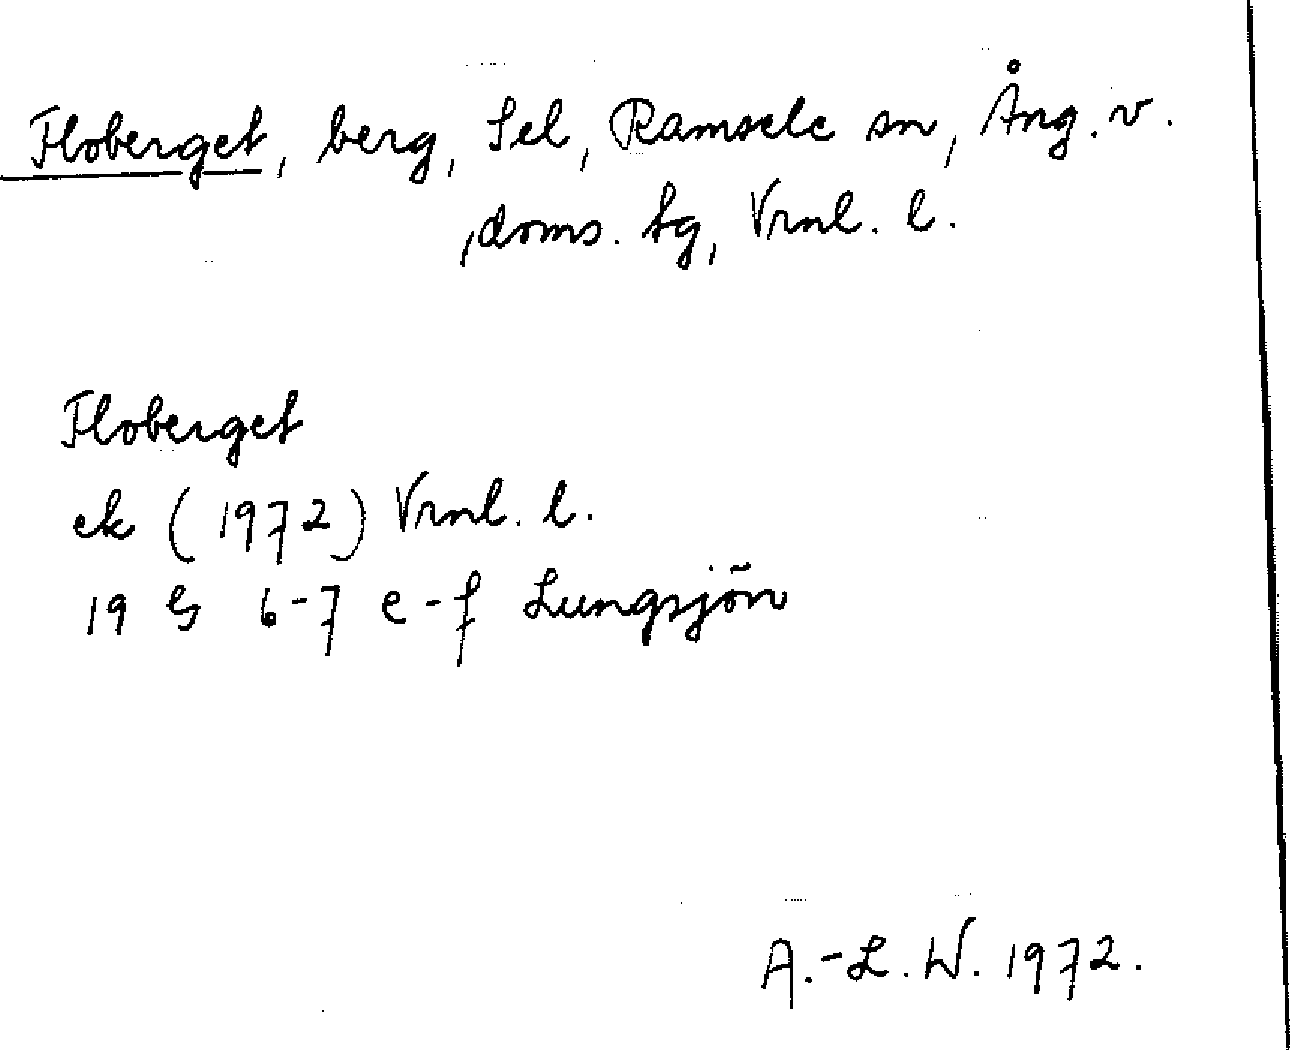 Floberget, berg, Sel, Ramsele sn, Ång. v.
, doms. tg, Vrnl. l.
Floberget
ek (1972) Vrnl. l.
19 G 6-7 e-f Lungsjön
A.-L. W. 1972.